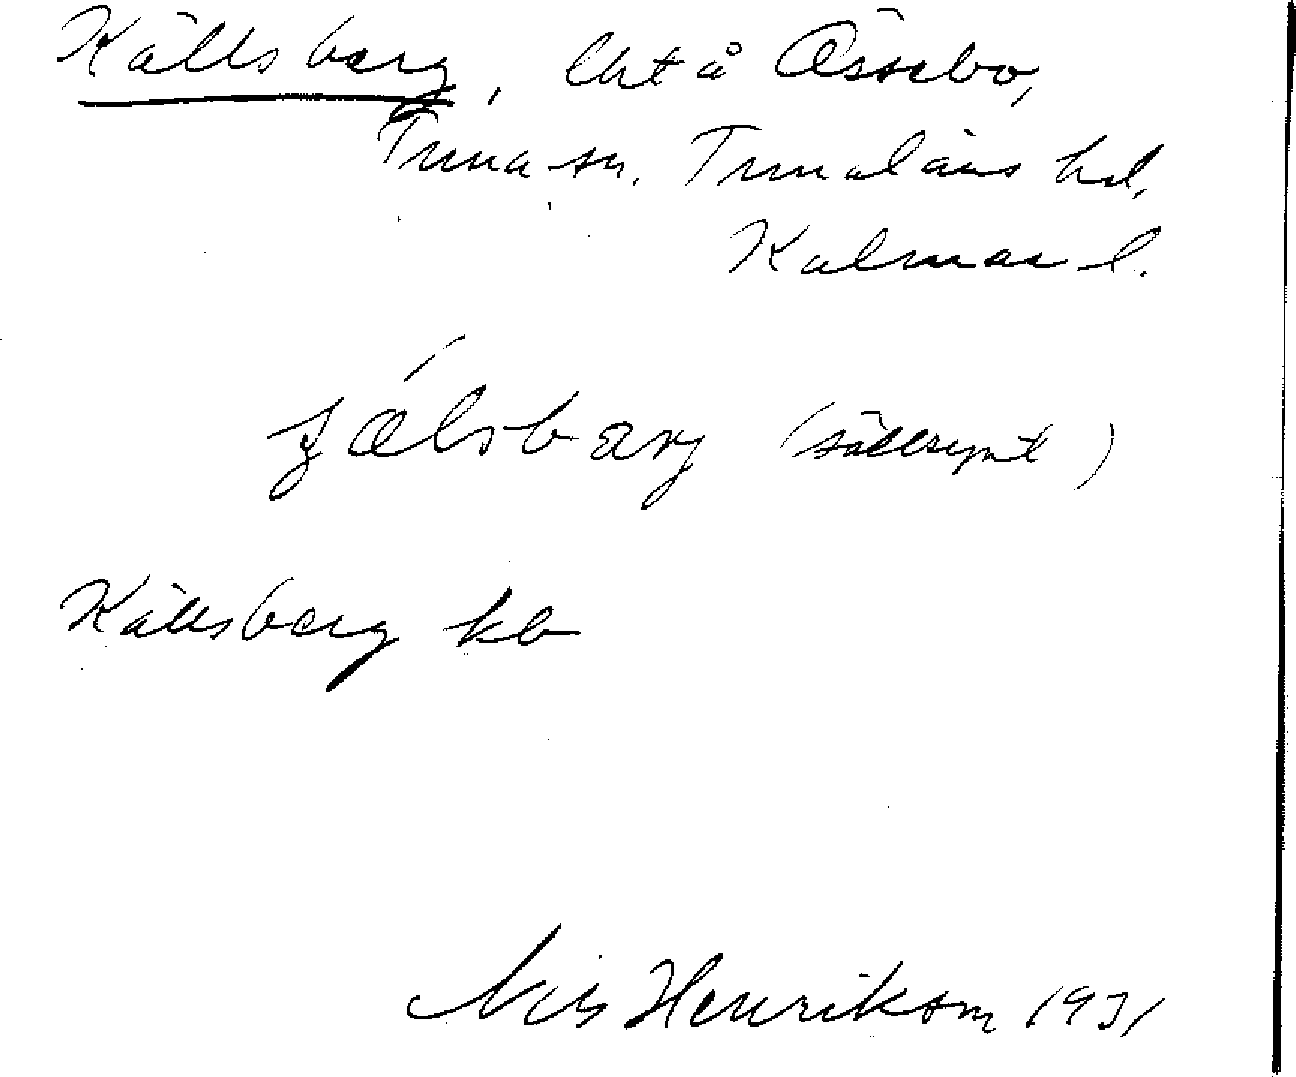 Källsberg, lht å Össebo,
Tuna sn. Tunaläns hd,
Kalmar l.
(sällsynt)
Källsberg kb
Nils Henrikson 1931